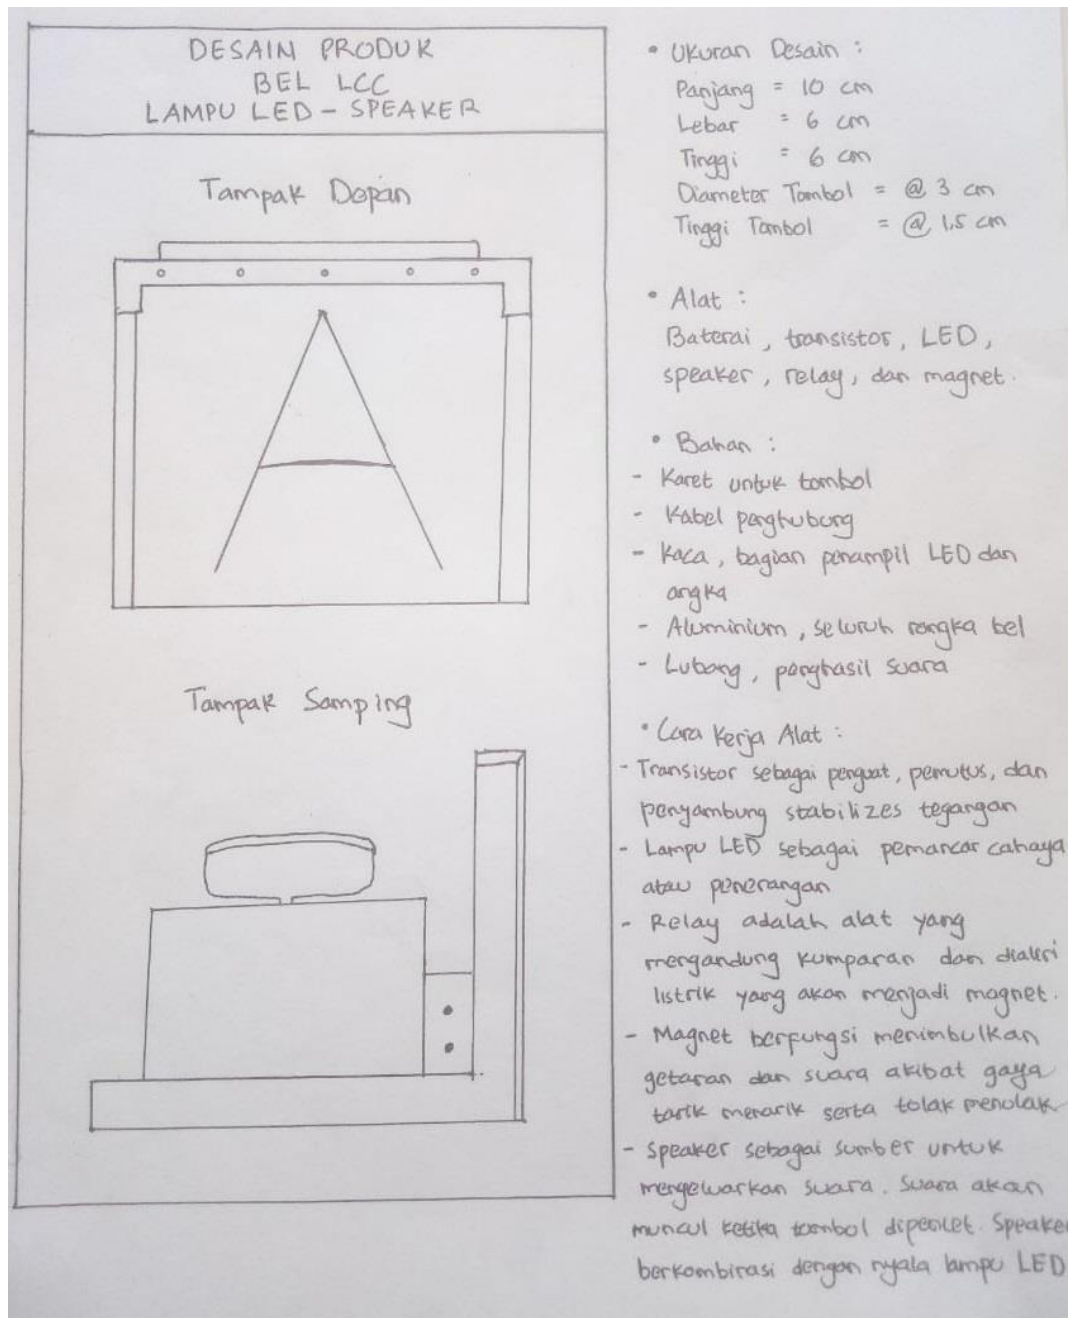 DESAIN PRODUK
BEL LCC
LAMPU LED - SPEAKER
Tampak Depan
A
Tampak Samping
• Ukuran Desain :
Panjang = 10 cm
Lebar = 6 cm
Tinggi = 6 cm
Diameter Tombol = @ 3 cm
Tinggi Tombol = @ 1,5 cm
• Alat :
Baterai, transistor, LED,
speaker, relay, dan magnet.
• Bahan :
- Karet untuk tombol
- Kabel penghubung
- Kaca, bagian penampil LED dan
angka
- Aluminium, seluruh rangka bel
- Lubang, penghasil suara
• Cara Kerja Alat :
- Transistor sebagai penguat, pemutus, dan
penyambung stabilizes tegangan
- Lampu LED sebagai pemancar cahaya
atau penerangan
- Relay adalah alat yang
mengandung kumparan dan dialiri
listrik yang akan menjadi magnet.
- Magnet berfungsi menimbulkan
getaran dan suara akibat gaya
tarik menarik serta tolak menolak
- Speaker sebagai sumber untuk
mengeluarkan suara. Suara akan
muncul ketika tombol dipencet. Speaker
berkombinasi dengan nyala lampu LED